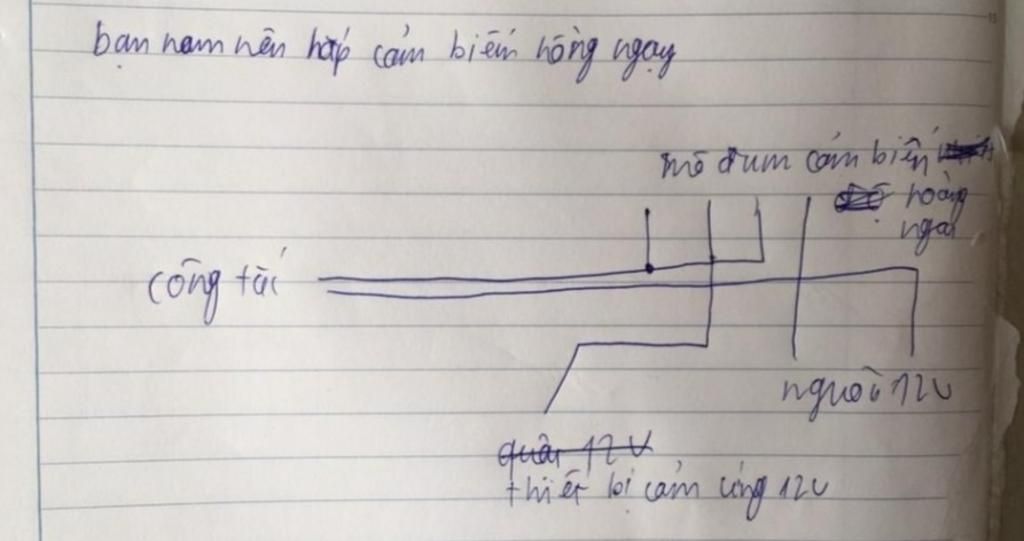 bạn nam nên hấp cảm biến hồng ngạy
mô đum cảm biến
hoàng
ngại
công tắc
nguồi 12V
quản 12V
thiết bị cảm ứng 12V